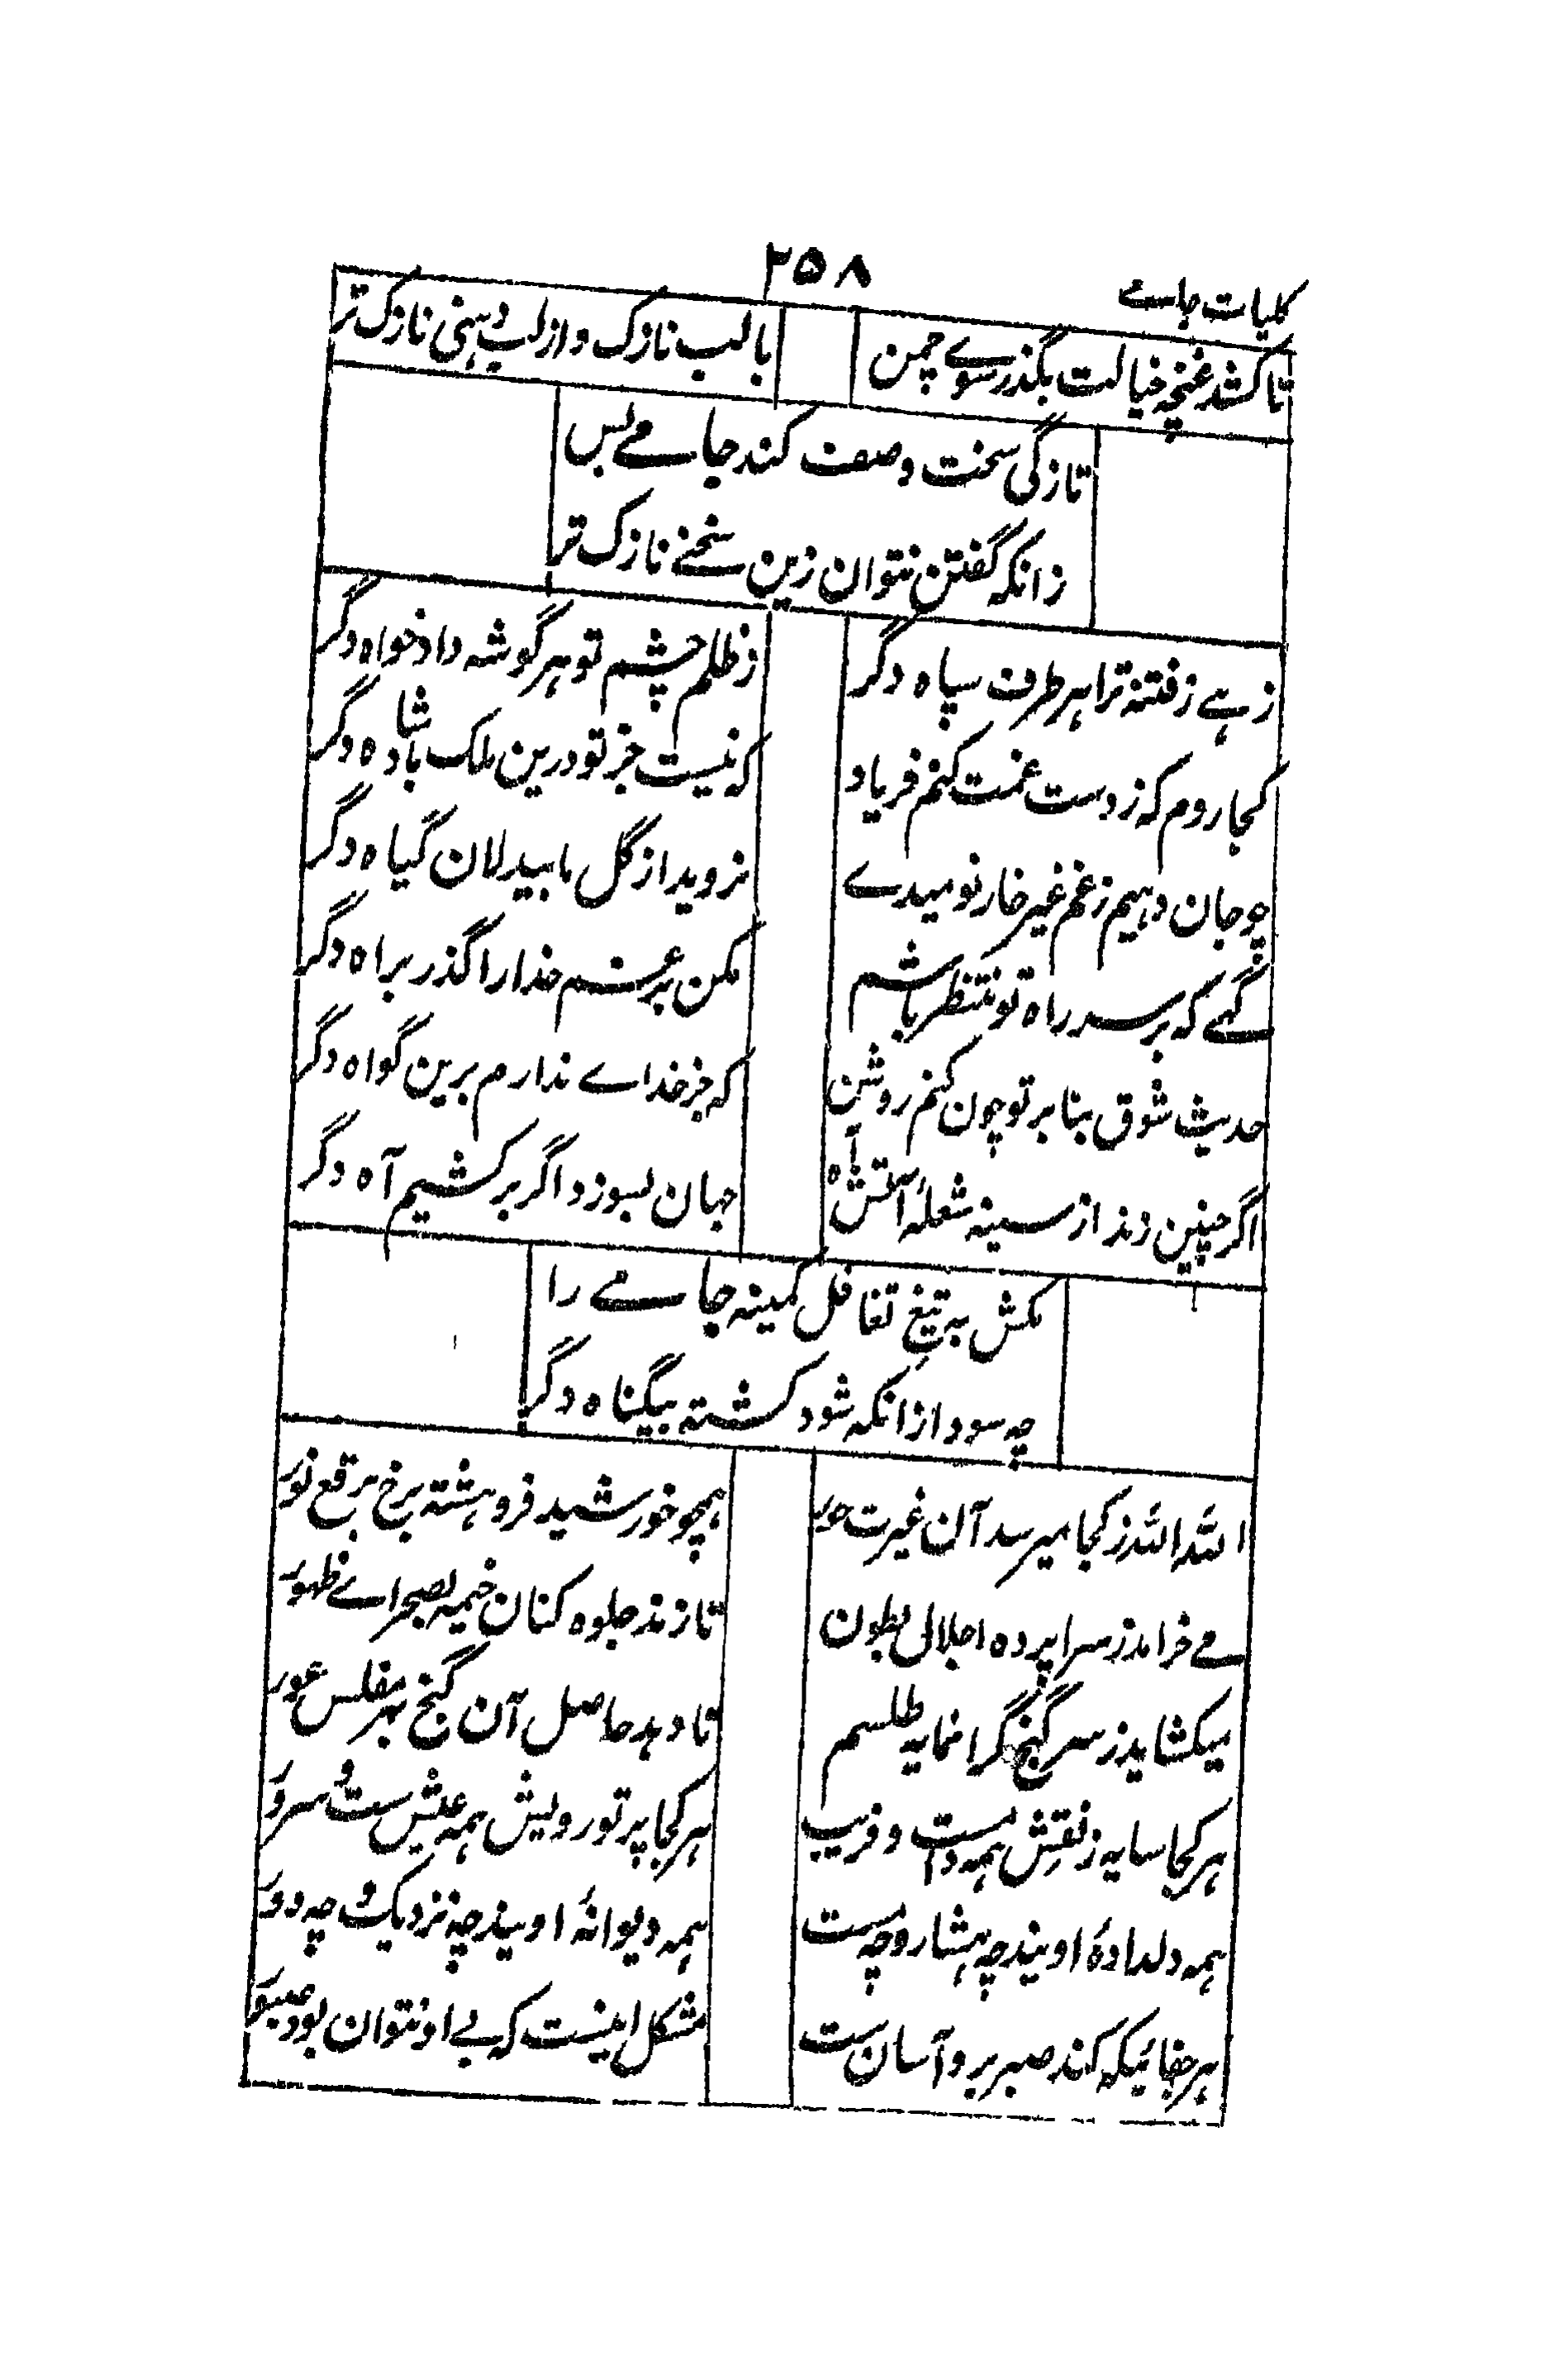 ۲۵۸
کلیات جامے
تا کشد غنچه خیالت بگذر سوے چمن
با لب نازک و از لب دہنی نازک تر
تازگی سخنت وصف کند جامے بس
زانکه گفتن نتوان زین سخنے نازک تر
زہے ز فتنه ترا ہر طرف سپاہ دگر
ز ظلم چشم تو ہر گوشه دادخواہ دگر
کجا روم که ز دست غمت کنم فریاد
که نیست جز تو درین ملک بادشاہ دگر
چو جان دہیم ز غم غیر خار نومیدے
نروید از گل ما بیدلان گیاہ دگر
گہے که بر سر راہ تو منتظر باشم
مکن برغم خدا را گذر براہ دگر
حدیث شوق بنا بر تو چون کنم روشن
که جز خداے ندارم برین گواہ دگر
اگر چنین زند از سینه شعلۂ آتش آہ
جہان بسوزد اگر برکشیم آہ دگر
مکش به تیغ تغافل کمینه جامے را
چه سود ازانکه شود کشته بیگناہ دگر
اللہ اللہ ز کجا میرسد آن غیرت حور
ہمچو خورشید فرو ہشته برخ برقع نور
مے خرامد ز سراپردہ اجلال بطون
تا زند جلوہ کنان خیمه بصحراے ظہور
میکشاید ز سر گنج گرانمایه طلسم
تا دہد حاصل آن گنج بہر مفلس عور
ہر کجا سایه زلفش ہمه دامست و فریب
ہر کجا پرتو رویش ہمه عیش ست و سرور
ہمه دلدادۂ اویند چه ہشیار و چه مست
ہمه دیوانۂ اویند چه نزدیک و چه دور
ہر جفائیکه کند صبر برو آسان ست
مشکل اینست که بے او نتوان بود صبور